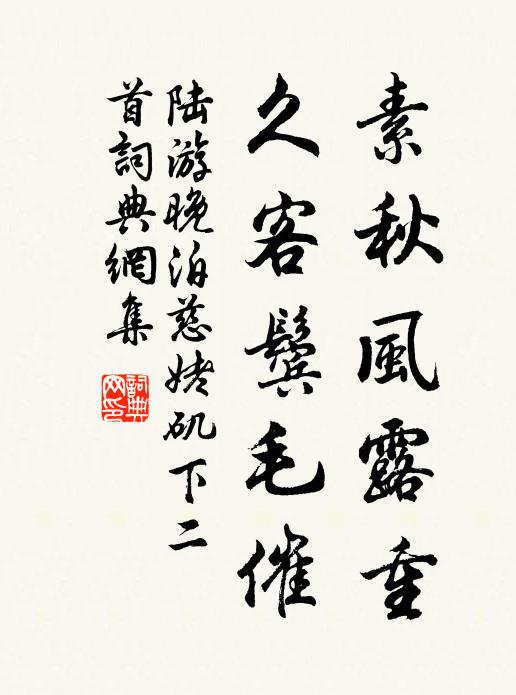 素秋風露重
久客鬢毛催
陆游晚泊慈姥矶下二
首詞典網集
詞典
网印